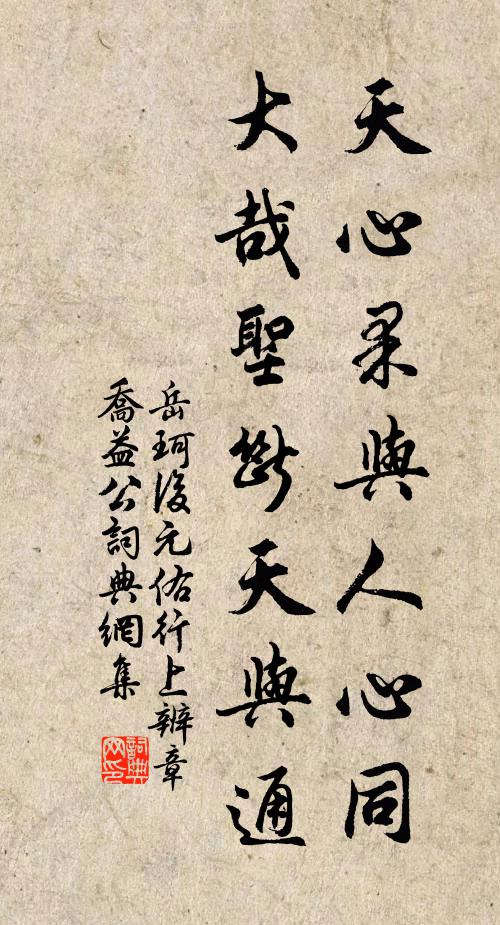 天心果與人心同
大哉聖斷天與通
岳珂後元佑行上辨章
喬益公詞典網集
詞典網印